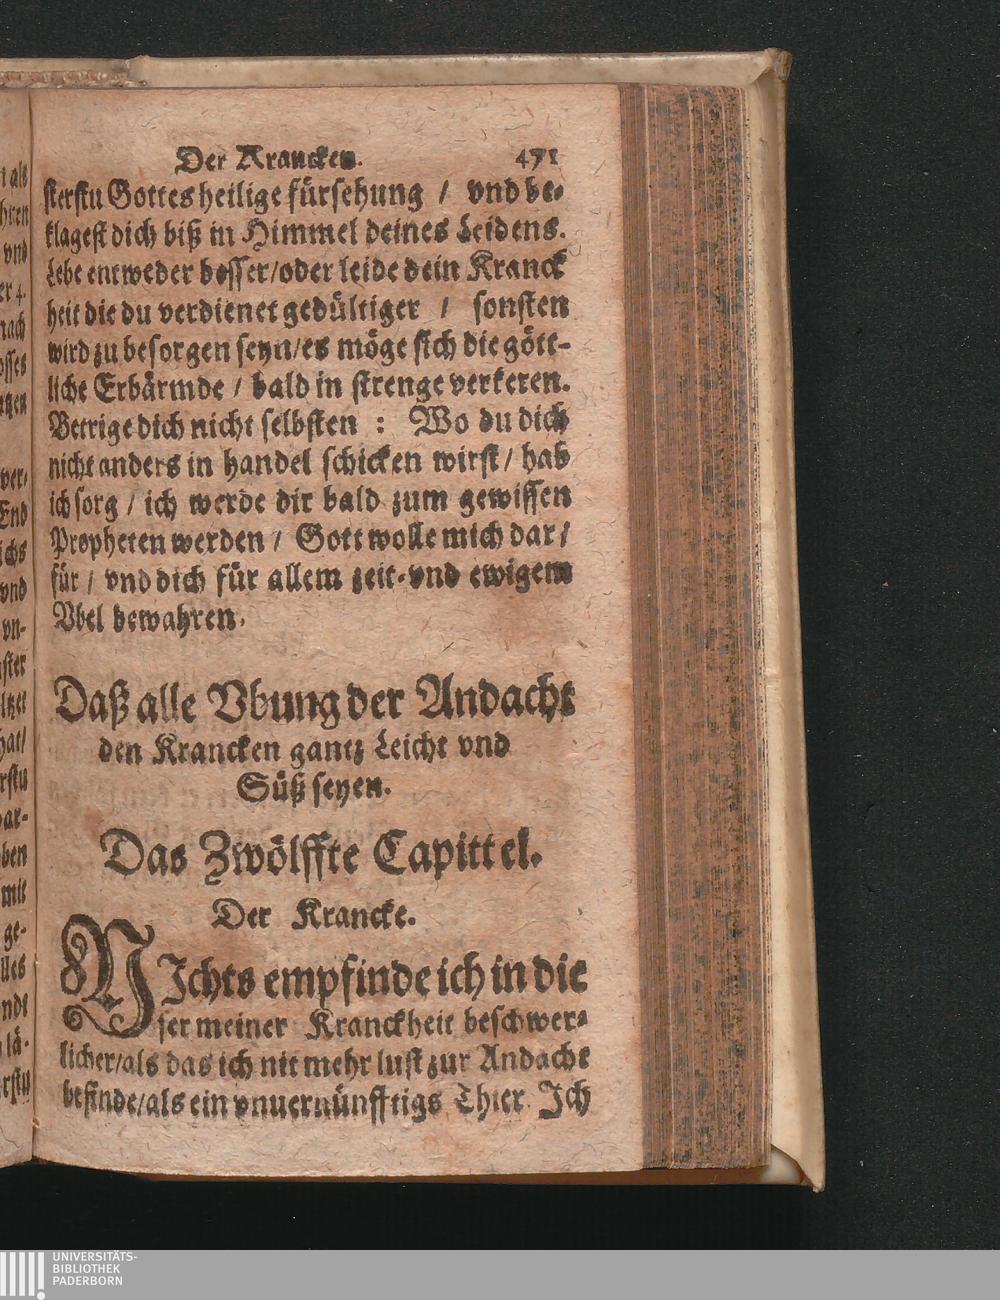 Der Krancken. 471
sterstu Gottes heilige fürsehung / vnd be-
klagest dich biß in Himmel deines Leidens.
Lebe entweder besser/oder leide dein Kranck
heit die du verdienet gedültiger / sonsten
wird zu besorgen seyn/es möge sich die gött-
liche Erbärmde / bald in strenge verkeren.
Betrige dich nicht selbsten : Wo du dich
nicht anders in handel schicken wirst / hab
ich sorg / ich werde dir bald zum gewissen
Propheten werden / Gott wolle mich dar /
für / vnd dich für allem zeit-vnd ewigem
Vbel bewahren.
Daß alle Vbung der Andacht
den Krancken gantz Leicht vnd
Süß seyen.
Das Zwölffte Capittel.
Der Krancke.
NIchts empfinde ich in die
ser meiner Kranckheit beschwer-
licher/als das ich nit mehr lust zur Andacht
befinde/als ein vnuernünfftigs Thier Ich
UNIVERSITÄTS-
BIBLIOTHEK
PADERBORN